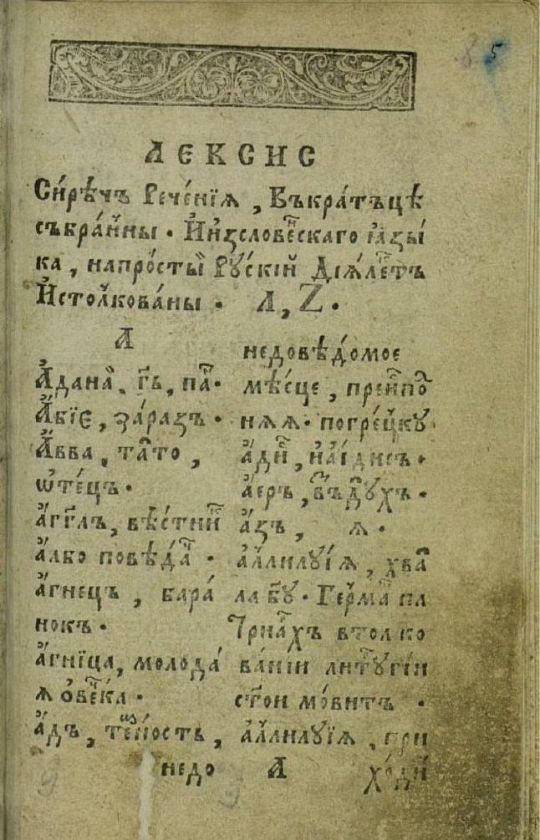 ЛЕКСИС
Си́рѣчъ Рече́нїѧ, Въкра́тъцѣ
събра́нⷩ҇ы. И҆иⷥ҇словеⷩ҇скаго ꙗ҆зы́
ка, напро́стыⷨ҇ Рꙋ́скїй Дїѧ́леⷦ҇тъ
И҆столкова́ны. Л, Z.
А
А҆данаⷤ, гⷭ҇ь, паⷩ҇.
А҆́бїе, за́разъ.
А҆́вва, таⷮ҇то,
ѡ҆те́цъ.
а҆́гг҃лъ, вѣ́стниⷦ҇
а҆́лбо повѣ́даⷱ҇.
а҆́гнецъ, бара́
нокъ.
а҆́гница, молода́
ѧ ѻ҆ве́чка.
а҆́дъ, те́мⷩ҇ость,
недовѣ́домое
мѣ́сце, преиспоⷣ
нѧѧ. погре́цкꙋ
а҆́диⷭ҇, и҆аи́дисъ.
а҆́еръ, въⷥ҇дꙋхъ.
а҆́зъ, ѧ.
а҆ллилꙋ́їѧ, хваⷧ
ла бг҃ꙋ. Ге́рмаⷩ па
трїа́рхъ втолко
ва́нїи литꙋргїи
ст҃ои мо́витъ.
а҆ллилꙋ́їѧ, при
недо А хо́диⷮ